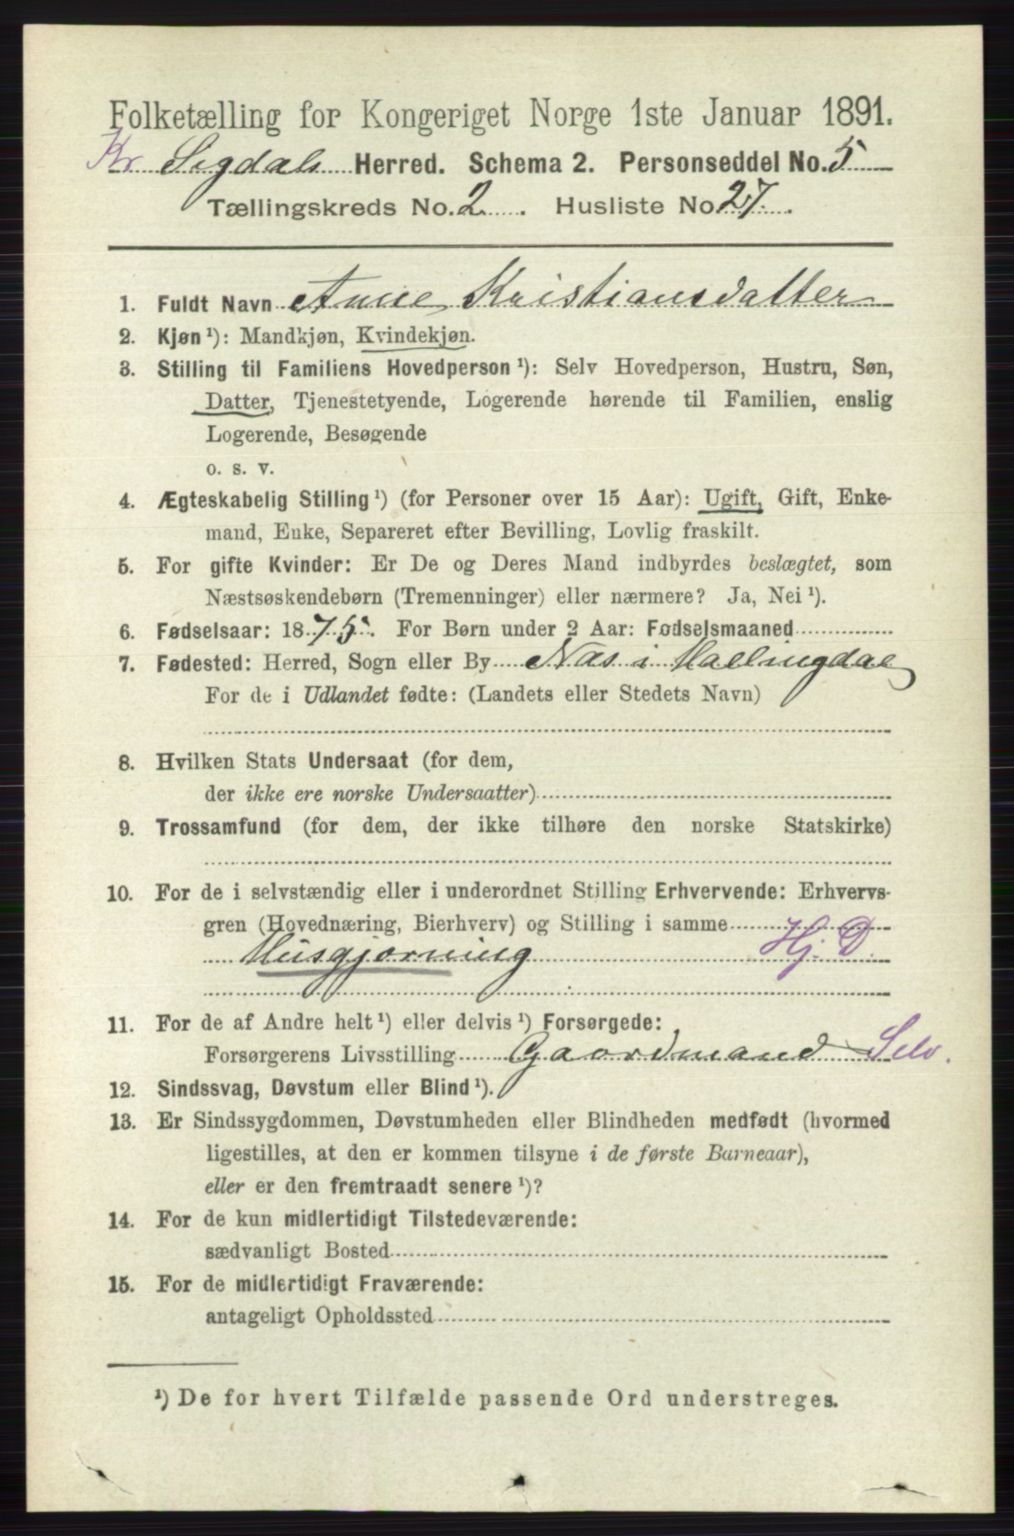 Folketælling for Kongeriget Norge 1ste Januar 1891.
Kr. Sigdals Herred. Schema 2. Personseddel No. 5
Tællingskreds No. 2. Husliste No 27.
1. Fuldt Navn Anne Kristiansdatter
2. Kjøn ¹): Mandkjøn, Kvindekjøn.
3. Stilling til Familiens Hovedperson ¹): Selv Hovedperson, Hustru, Søn,
Datter, Tjenestetyende, Logerende hørende til Familien, enslig
Logerende, Besøgende
o. s. v.
4. Ægteskabelig Stilling ¹) (for Personer over 15 Aar): Ugift, Gift, Enke-
mand, Enke, Separeret efter Bevilling, Lovlig fraskilt.
5. For gifte Kvinder: Er De og Deres Mand indbyrdes beslægtet, som
Næstsøskendebørn (Tremenninger) eller nærmere? Ja, Nei ¹).
6. Fødselsaar: 1875. For Børn under 2 Aar: Fødselsmaaned
7. Fødested: Herred, Sogn eller By Næs i Hallingdal
For de i Udlandet fødte: (Landets eller Stedets Navn)
8. Hvilken Stats Undersaat (for dem,
der ikke ere norske Undersaatter)
9. Trossamfund (for dem, der ikke tilhøre den norske Statskirke)
10. For de i selvstændig eller i underordnet Stilling Erhvervende: Erhvervs-
gren (Hovednæring, Bierhverv) og Stilling i samme
Husgjørning Hj. D.
11. For de af Andre helt ¹) eller delvis ¹) Forsørgede:
Forsørgerens Livsstilling Gaardmand Selv.
12. Sindssvag, Døvstum eller Blind ¹).
13. Er Sindssygdommen, Døvstumheden eller Blindheden medfødt (hvormed
ligestilles, at den er kommen tilsyne i de første Barneaar),
eller er den fremtraadt senere ¹)?
14. For de kun midlertidigt Tilstedeværende:
sædvanligt Bosted
15. For de midlertidigt Fraværende:
antageligt Opholdssted
¹) De for hvert Tilfælde passende Ord understreges.